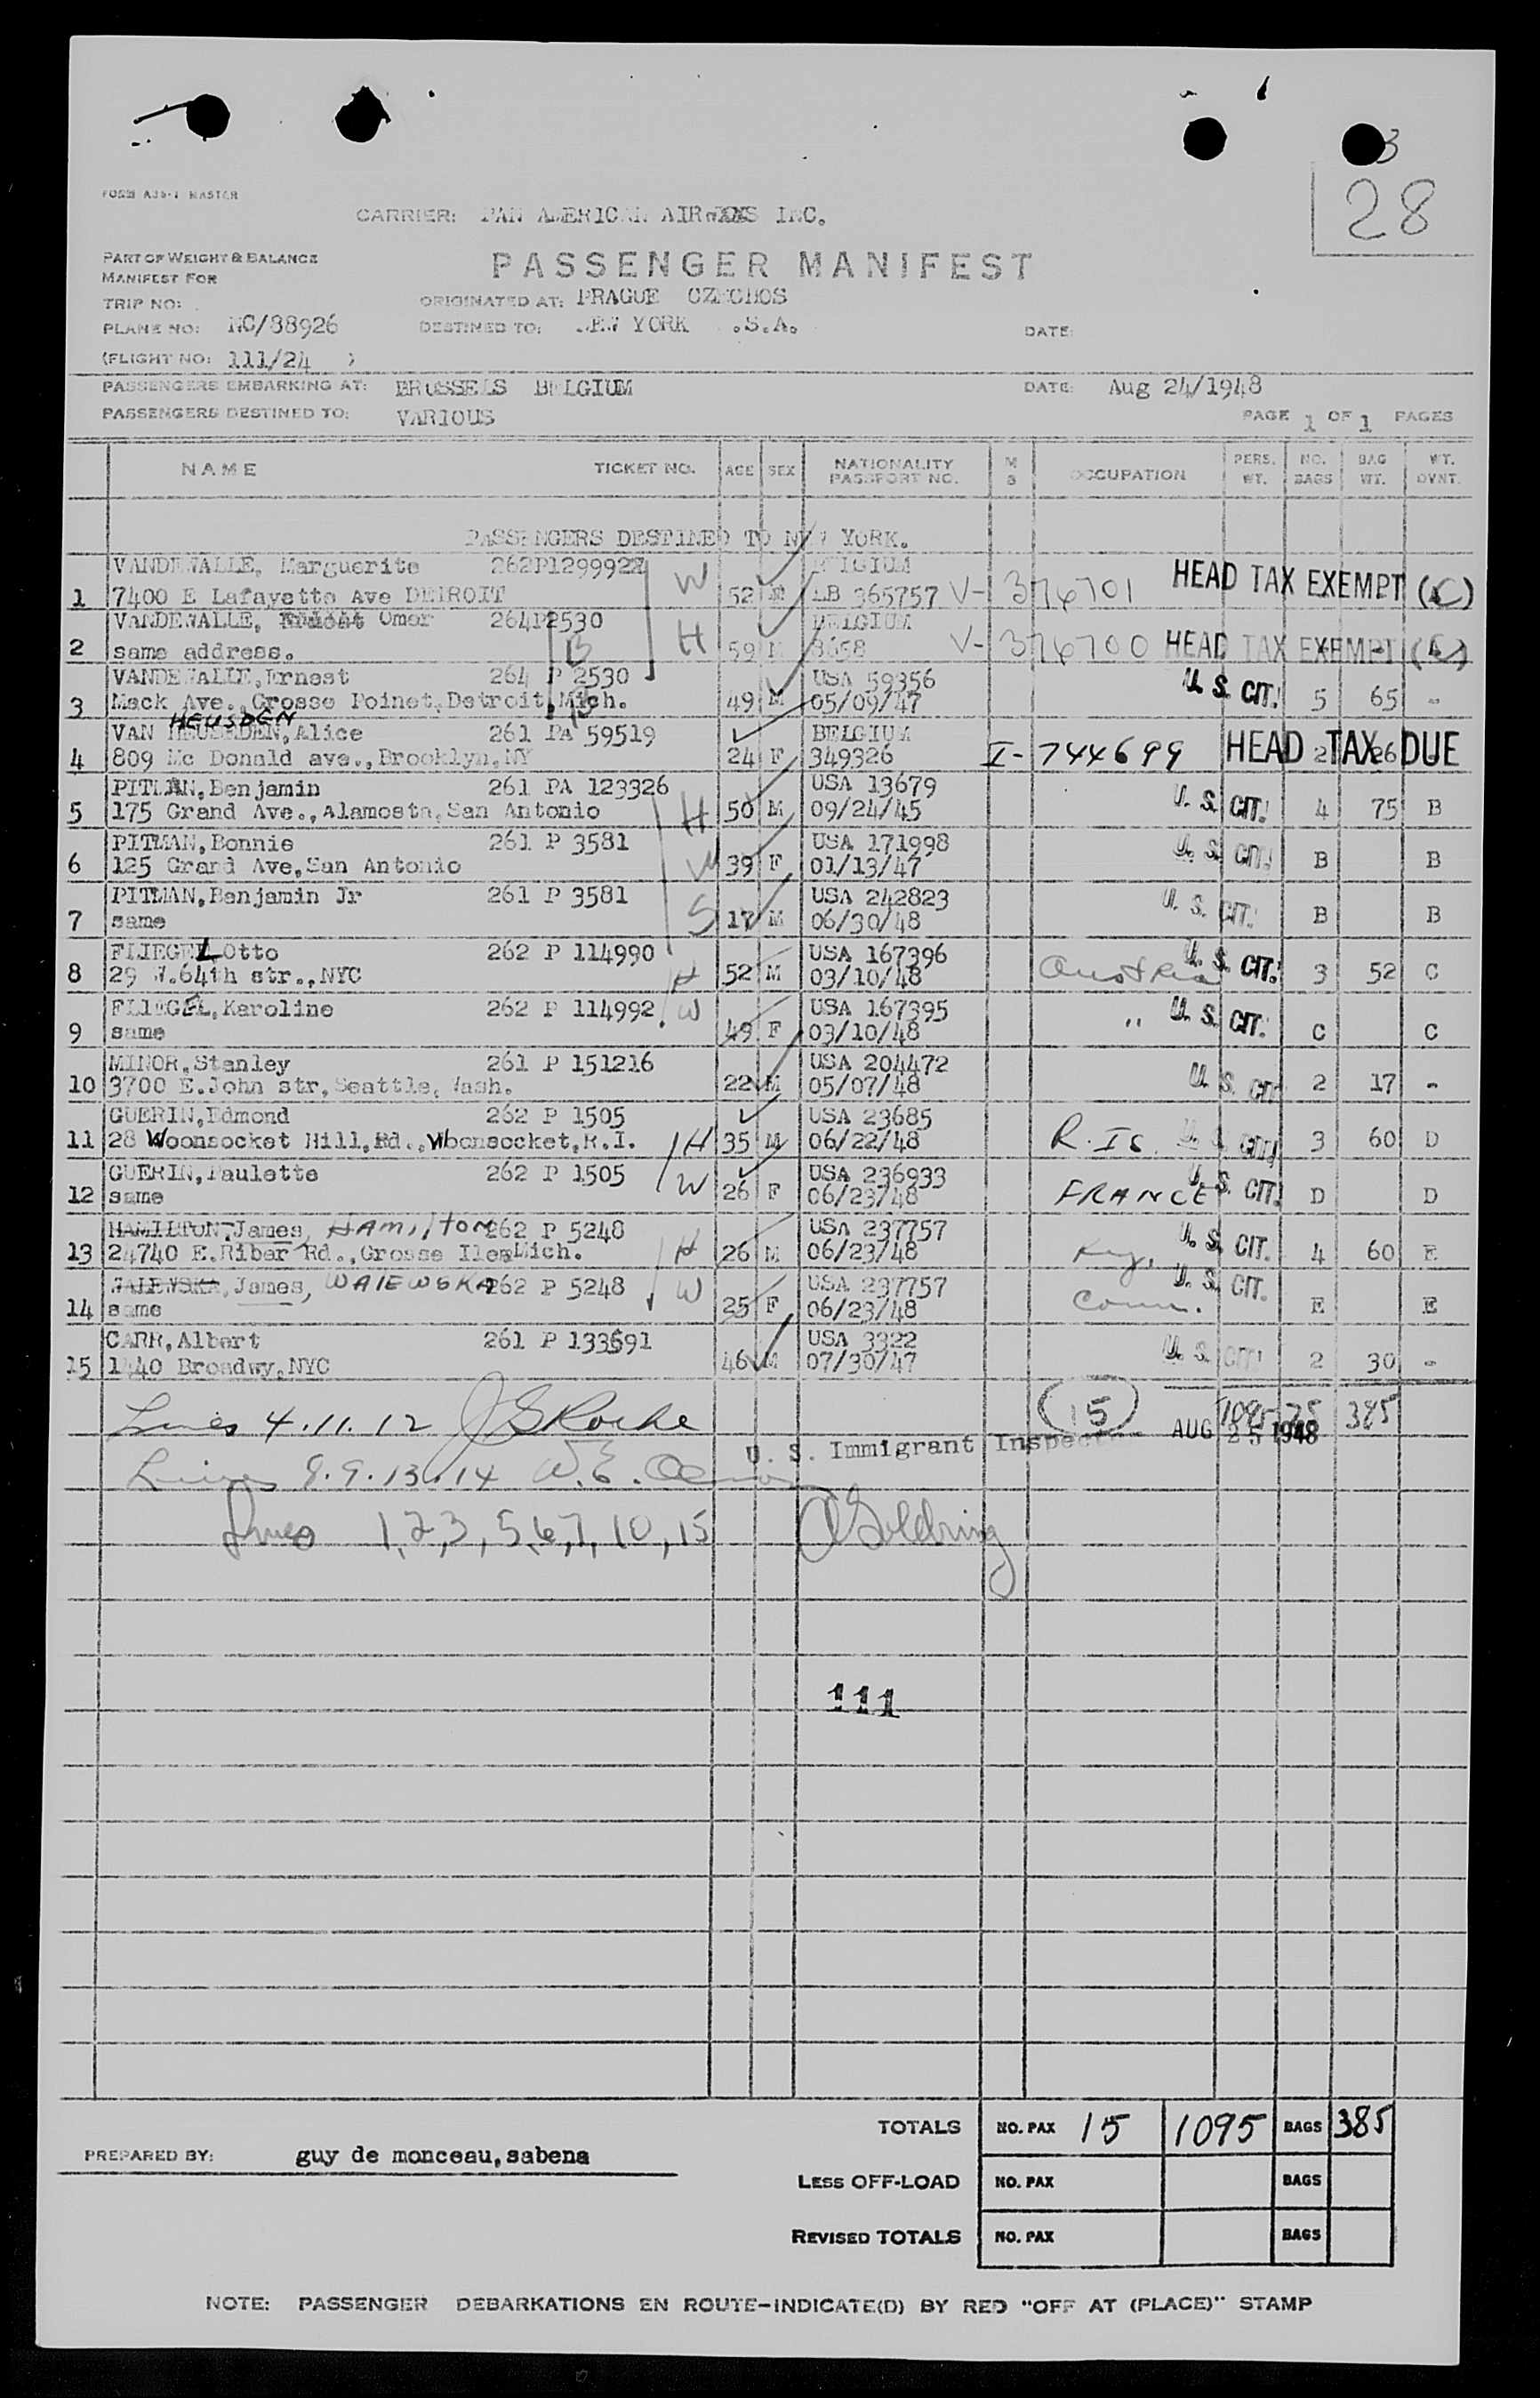 3
28
FORM A35-1 MASTER
CARRIER: PAN AMERICAN AIRWAYS INC.
PART OF WEIGHT & BALANCE
MANIFEST FOR
PASSENGER MANIFEST
TRIP NO:
ORIGINATED AT: PRAGUE CZECHOS
PLANE NO: NC/88926
DESTINED TO: NEW YORK .S.A.
DATE:
(FLIGHT NO: 111/24 )
PASSENGERS EMBARKING AT: BRUSSELS BELGIUM DATE: Aug 24/1948
PASSENGERS DESTINED TO: VARIOUS PAGE 1 OF 1 PAGES
NAME TICKET NO. AGE SEX NATIONALITY PASSPORT NO. M S OCCUPATION PERS. WT. NO. BAGS BAG WT. WT. OVNT.
PASSENGERS DESTINED TO NEW YORK.
VANDEWALLE, Marguerite 262P129992 W BELGIUM HEAD TAX EXEMPT (C)
1 7400 E Lafayette Ave DETROIT 52 LB 365757 V- 376701
VANDEWALLE, Omer 264P2530 H BELGIUM
2 same address. B 59 M 8658 V- 376700 HEAD TAX EXEMPT
VANDEWALLE, Ernest 264 P 2530 USA 59356 U. S. CIT.
3 Mack Ave., Grosse Poinet, Detroit, Mich. B 49 M 05/09/47 5 65 -
HEUSDEN
VAN HEUSEDEN, Alice 261 PA 59519 BELGIUM
4 809 Mc Donald ave., Brooklyn, NY 24 F 349326 I- 744699 HEAD TAX DUE 2 26
PITMAN, Benjamin 261 PA 123326 USA 13679 U. S. CIT.
5 175 Grand Ave., Alamosta, San Antonio H 50 M 09/24/45 4 75 B
PITMAN, Bonnie 261 P 3581 USA 171998 U. S. CIT.
6 125 Grand Ave, San Antonio W 39 F 01/13/47 B B
PITMAN, Benjamin Jr 261 P 3581 USA 242823 U. S. CIT.
7 same S 17 M 06/30/48 B B
FLIEGEL Otto 262 P 114990 USA 167396 U. S. CIT.
8 29 W.64th str., NYC H 52 M 03/10/48 Austria 3 52 C
FLIEGEL, Karoline 262 P 114992 W USA 167395 U. S. CIT.
9 same 49 F 03/10/48 " C C
MINOR, Stanley 261 P 151216 USA 204472
10 3700 E. John str, Seattle, Wash. 22 M 05/07/48 U. S. CIT 2 17 -
GUERIN, Edmond 262 P 1505 USA 23685
11 28 Woonsocket Hill, Rd., Woonsocket, R.I. H 35 M 06/22/48 R. Is. U. S. CIT. 3 60 D
GUERIN, Paulette 262 P 1505 USA 236933
12 same W 26 F 06/23/48 FRANCE U. S. CIT. D D
HAMILTON, James, HAMILTON 262 P 5248 USA 237757
13 24740 E. Riber Rd., Grosse Iles Mich. H 26 M 06/23/48 Ky. U. S. CIT. 4 60 E
WAIEWSKA, James, WAIEWSKA 262 P 5248 W USA 237757
14 same 25 F 06/23/48 Conn. U. S. CIT. E E
CARR, Albert 261 P 133691 USA 3322
15 1440 Broadwy, NYC 46 M 07/30/47 U. S. CIT. 2 30 -
Lines 4.11.12 J S Roche (15) 1095 25 385
U. S. Immigrant Inspector AUG 25 1948
Lines 8.9.13.14 W. E.
Lines 1,2,3,5,6,7,10,15 A Goldring
111
TOTALS NO. PAX 15 1095 BAGS 385
PREPARED BY: guy de monceau, sabena
LESS OFF-LOAD NO. PAX BAGS
REVISED TOTALS NO. PAX BAGS
NOTE: PASSENGER DEBARKATIONS EN ROUTE-INDICATE(D) BY RED "OFF AT (PLACE)" STAMP